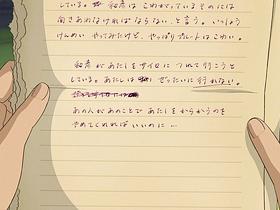 している。和彦は こわがっているものには
向きあわなければならない、と言う。いっしょう
けんめい やってみたけど、やっぱりプレートはこわい。
和彦が あたしをサイロに つれて行こうと
している。あたしは ぜったいに 行かない。
あの人が あのことで あたしを からかうのを
やめてくれれば いいのに…